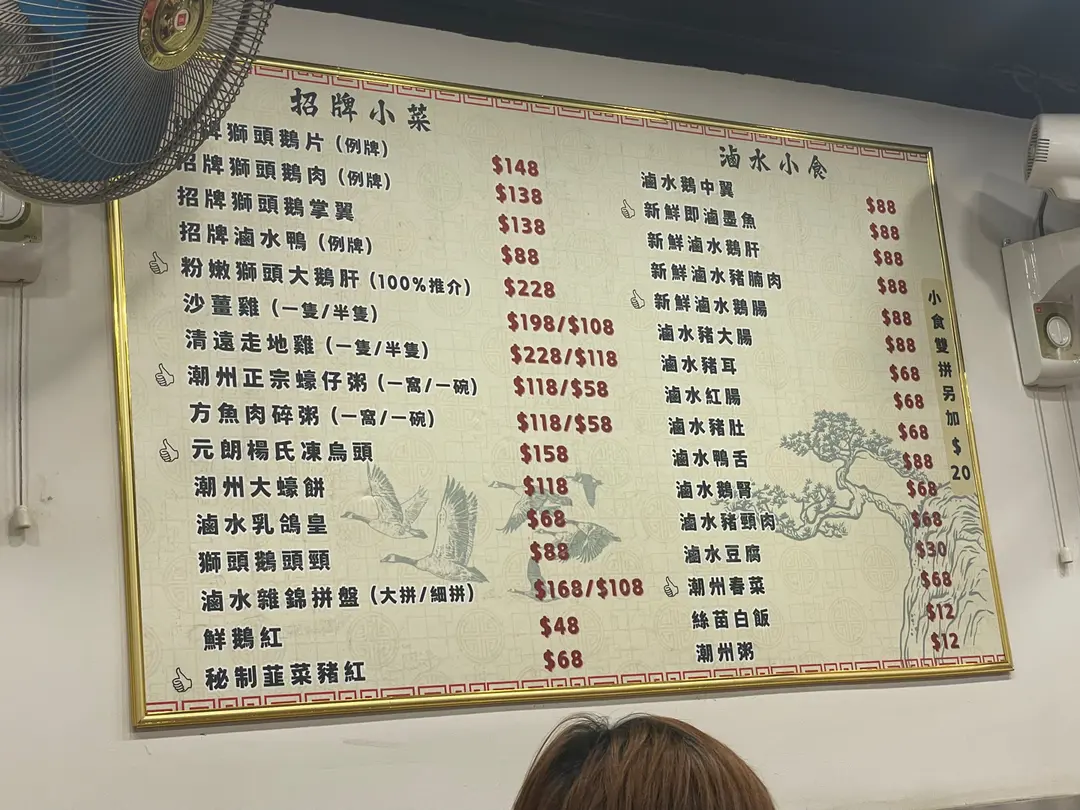 招牌小菜
牌獅頭鵝片（例牌） $148
招牌獅頭鵝肉（例牌） $138
招牌獅頭鵝掌翼 $138
招牌滷水鴨（例牌） $88
粉嫩獅頭大鵝肝（100%推介） $228
沙薑雞（一隻/半隻） $198/$108
清遠走地雞（一隻/半隻） $228/$118
潮州正宗蠔仔粥（一窩/一碗） $118/$58
方魚肉碎粥（一窩/一碗） $118/$58
元朗楊氏凍烏頭 $158
潮州大蠔餅 $118
滷水乳鴿皇 $68
獅頭鵝頭頸 $88
滷水雜錦拼盤（大拼/細拼） $168/$108
鮮鵝紅 $48
秘制韮菜豬紅 $68
滷水小食
滷水鵝中翼 $88
新鮮即滷墨魚 $88
新鮮滷水鵝肝 $88
新鮮滷水豬腩肉 $88
新鮮滷水鵝腸 $88
滷水豬大腸 $88
滷水豬耳 $68
滷水紅腸 $68
滷水豬肚 $68
滷水鴨舌 $88
滷水鵝腎 $68
滷水豬頸肉 $68
滷水豆腐 $30
潮州春菜 $68
絲苗白飯 $12
潮州粥 $12
小食雙拼另加$20